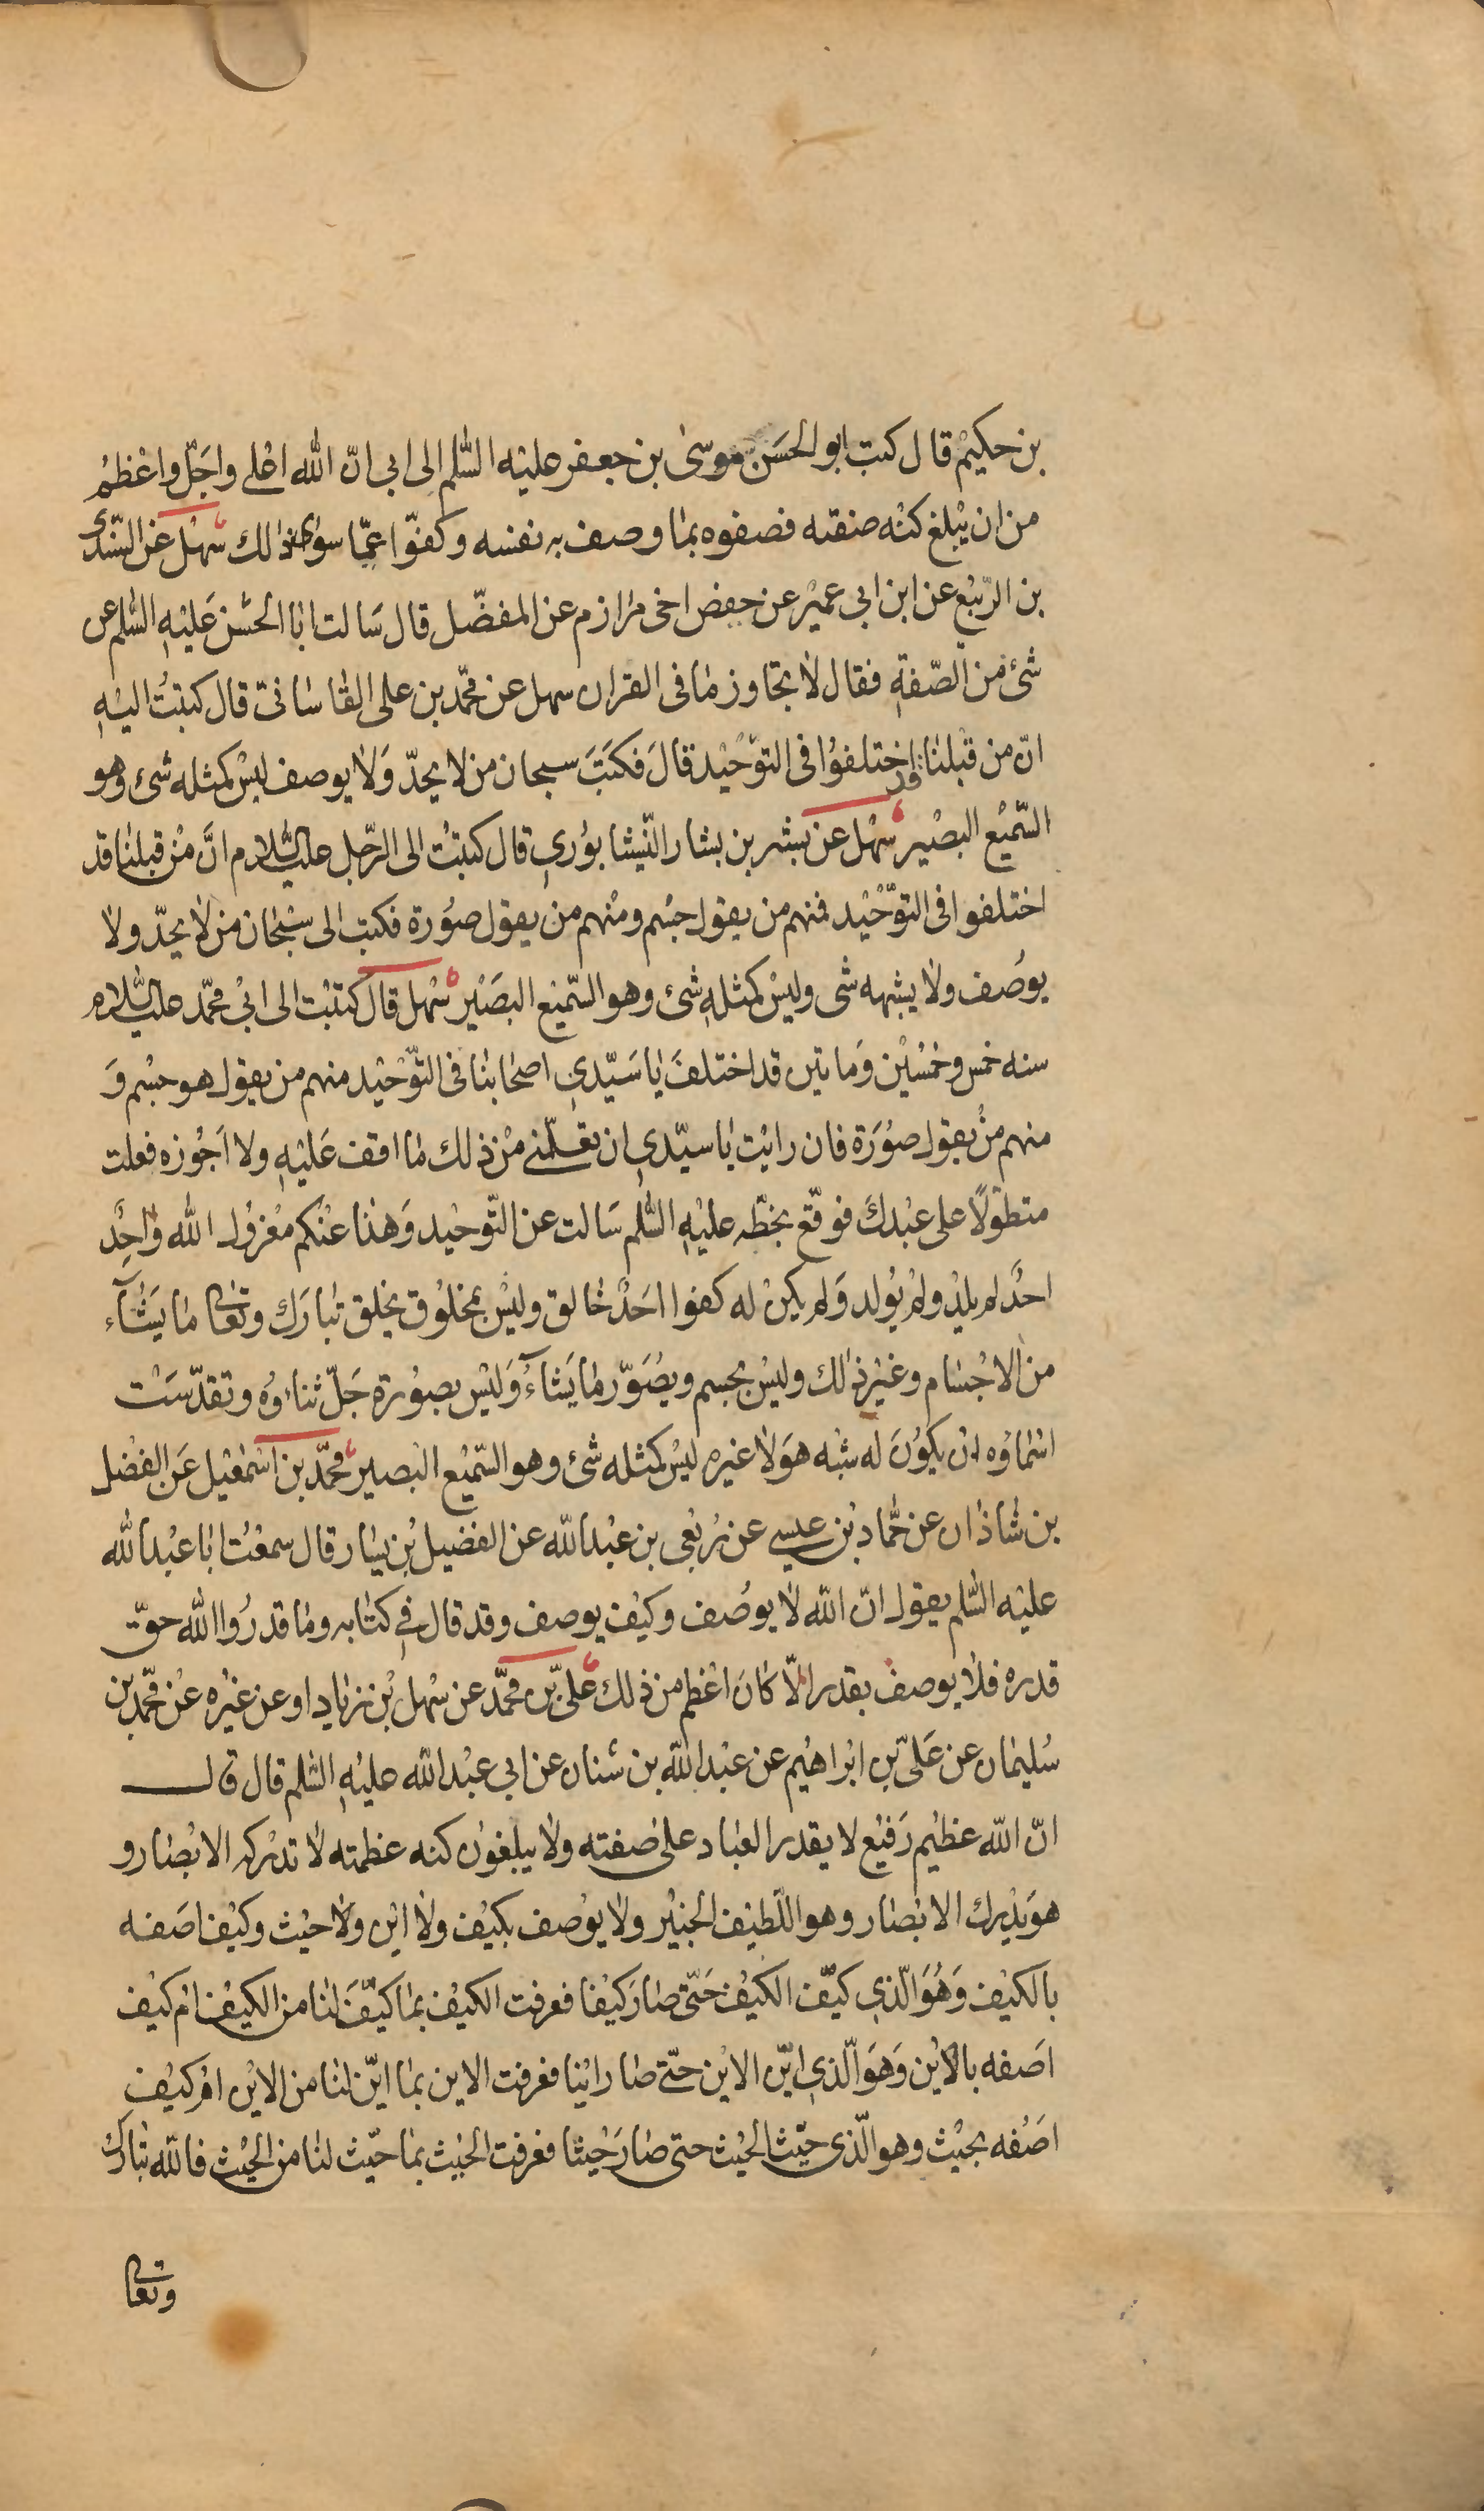 بن حكيم قال كتب ابو الحسن موسى بن جعفر عليه السلم الى ابى انّ الله اعلى واجلّ واعظم
من ان يبلغ كنه صفته فصفوه بما وصف به نفسه وكفوّا عمّا سوى ذلك سهل عن السّندى
بن الربيع عن ابن ابى عمير عن حفص اخى مرازم عن المفضّل قال سالت ابا الحسن عليه السلم عن
شئ من الصّفة فقال لا تجاوز ما فى القران سهل عن محمّد بن على القاسانى قال كتبت اليه
انّ من قبلنا قد اختلفوا فى التوحيد قال فكتب سبحان من لا يحدّ ولا يوصف ليس كمثله شئ وهو
السّميع البصير سهل عن بشر بن بشار النّيشابورى قال كتبت الى الرّجل عليه السلام انّ من قبلنا قد
اختلفوا فى التوّحيد فمنهم من يقول جسم ومنهم من يقول صورة فكتب الى سبحان من لا يحدّ ولا
يوصف ولا يشبهه شى وليس كمثله شئ وهو السّميع البصير سهل قال كتبت الى ابى محمّد عليه السلام
سنه خمس وخمسين وماتين قد اختلف يا سيّدى اصحابنا فى التوّحيد منهم من يقول هو جسم و
منهم من يقول صورة فان رايت يا سيّدى ان تعلّمنى من ذلك ما اقف عليه ولا اجوزه فعلت
متطوّلًا على عبدك فوقّع بخطّه عليه السلم سالت عن التّوحيد وهذا عنكم معزول الله واحد
احد لم يلد ولم يولد ولم يكن له كفوا احد خالق وليس بمخلوق يخلق تبارك وتعالى ما يشآء
من الاجسام وغير ذلك وليس بجسم ويصوّر ما يشآء وليس بصورة جلّ ثناءوه وتقدّست
اسماوه ان يكون له شبه هو لا غيره ليس كمثله شئ وهو السّميع البصير محمّد بن اسمعيل عن الفضل
بن شاذان عن حمّاد بن عيسى عن ربعى بن عبد الله عن الفضيل بن يسار قال سمعت ابا عبد الله
عليه السلم يقول انّ الله لا يوصف وكيف يوصف وقد قال فى كتابه وما قدروا الله حقّ
قدره فلا يوصف بقدر الّا كان اعظم من ذلك علىّ بن محمّد عن سهل بن زياد او عن غيره عن محمّد بن
سليمان عن علىّ بن ابراهيم عن عبد الله بن سنان عن ابى عبد الله عليه السلم قال قال
انّ الله عظيم رفيع لا يقدر العباد على صفته ولا يبلغون كنه عظمته لا تدركه الابصار و
هو يدرك الابصار وهو اللّطيف الخبير ولا يوصف بكيف ولا اين ولا حيث وكيف اصفه
بالكيف وهو الّذى كيّف الكيف حتّى صار كيفا فعرفت الكيف بما كيّف لنا من الكيف ام كيف
اصفه بالاين وهو الّذى ايّن الاين حتّى صار اينا فعرفت الاين بما ايّن لنا من الاين ام كيف
اصفه بحيث وهو الّذى حيّث الحيث حتى صار حيثا فعرفت الحيث بما حيّث لنا من الحيث فالله تبارك
وتعالى